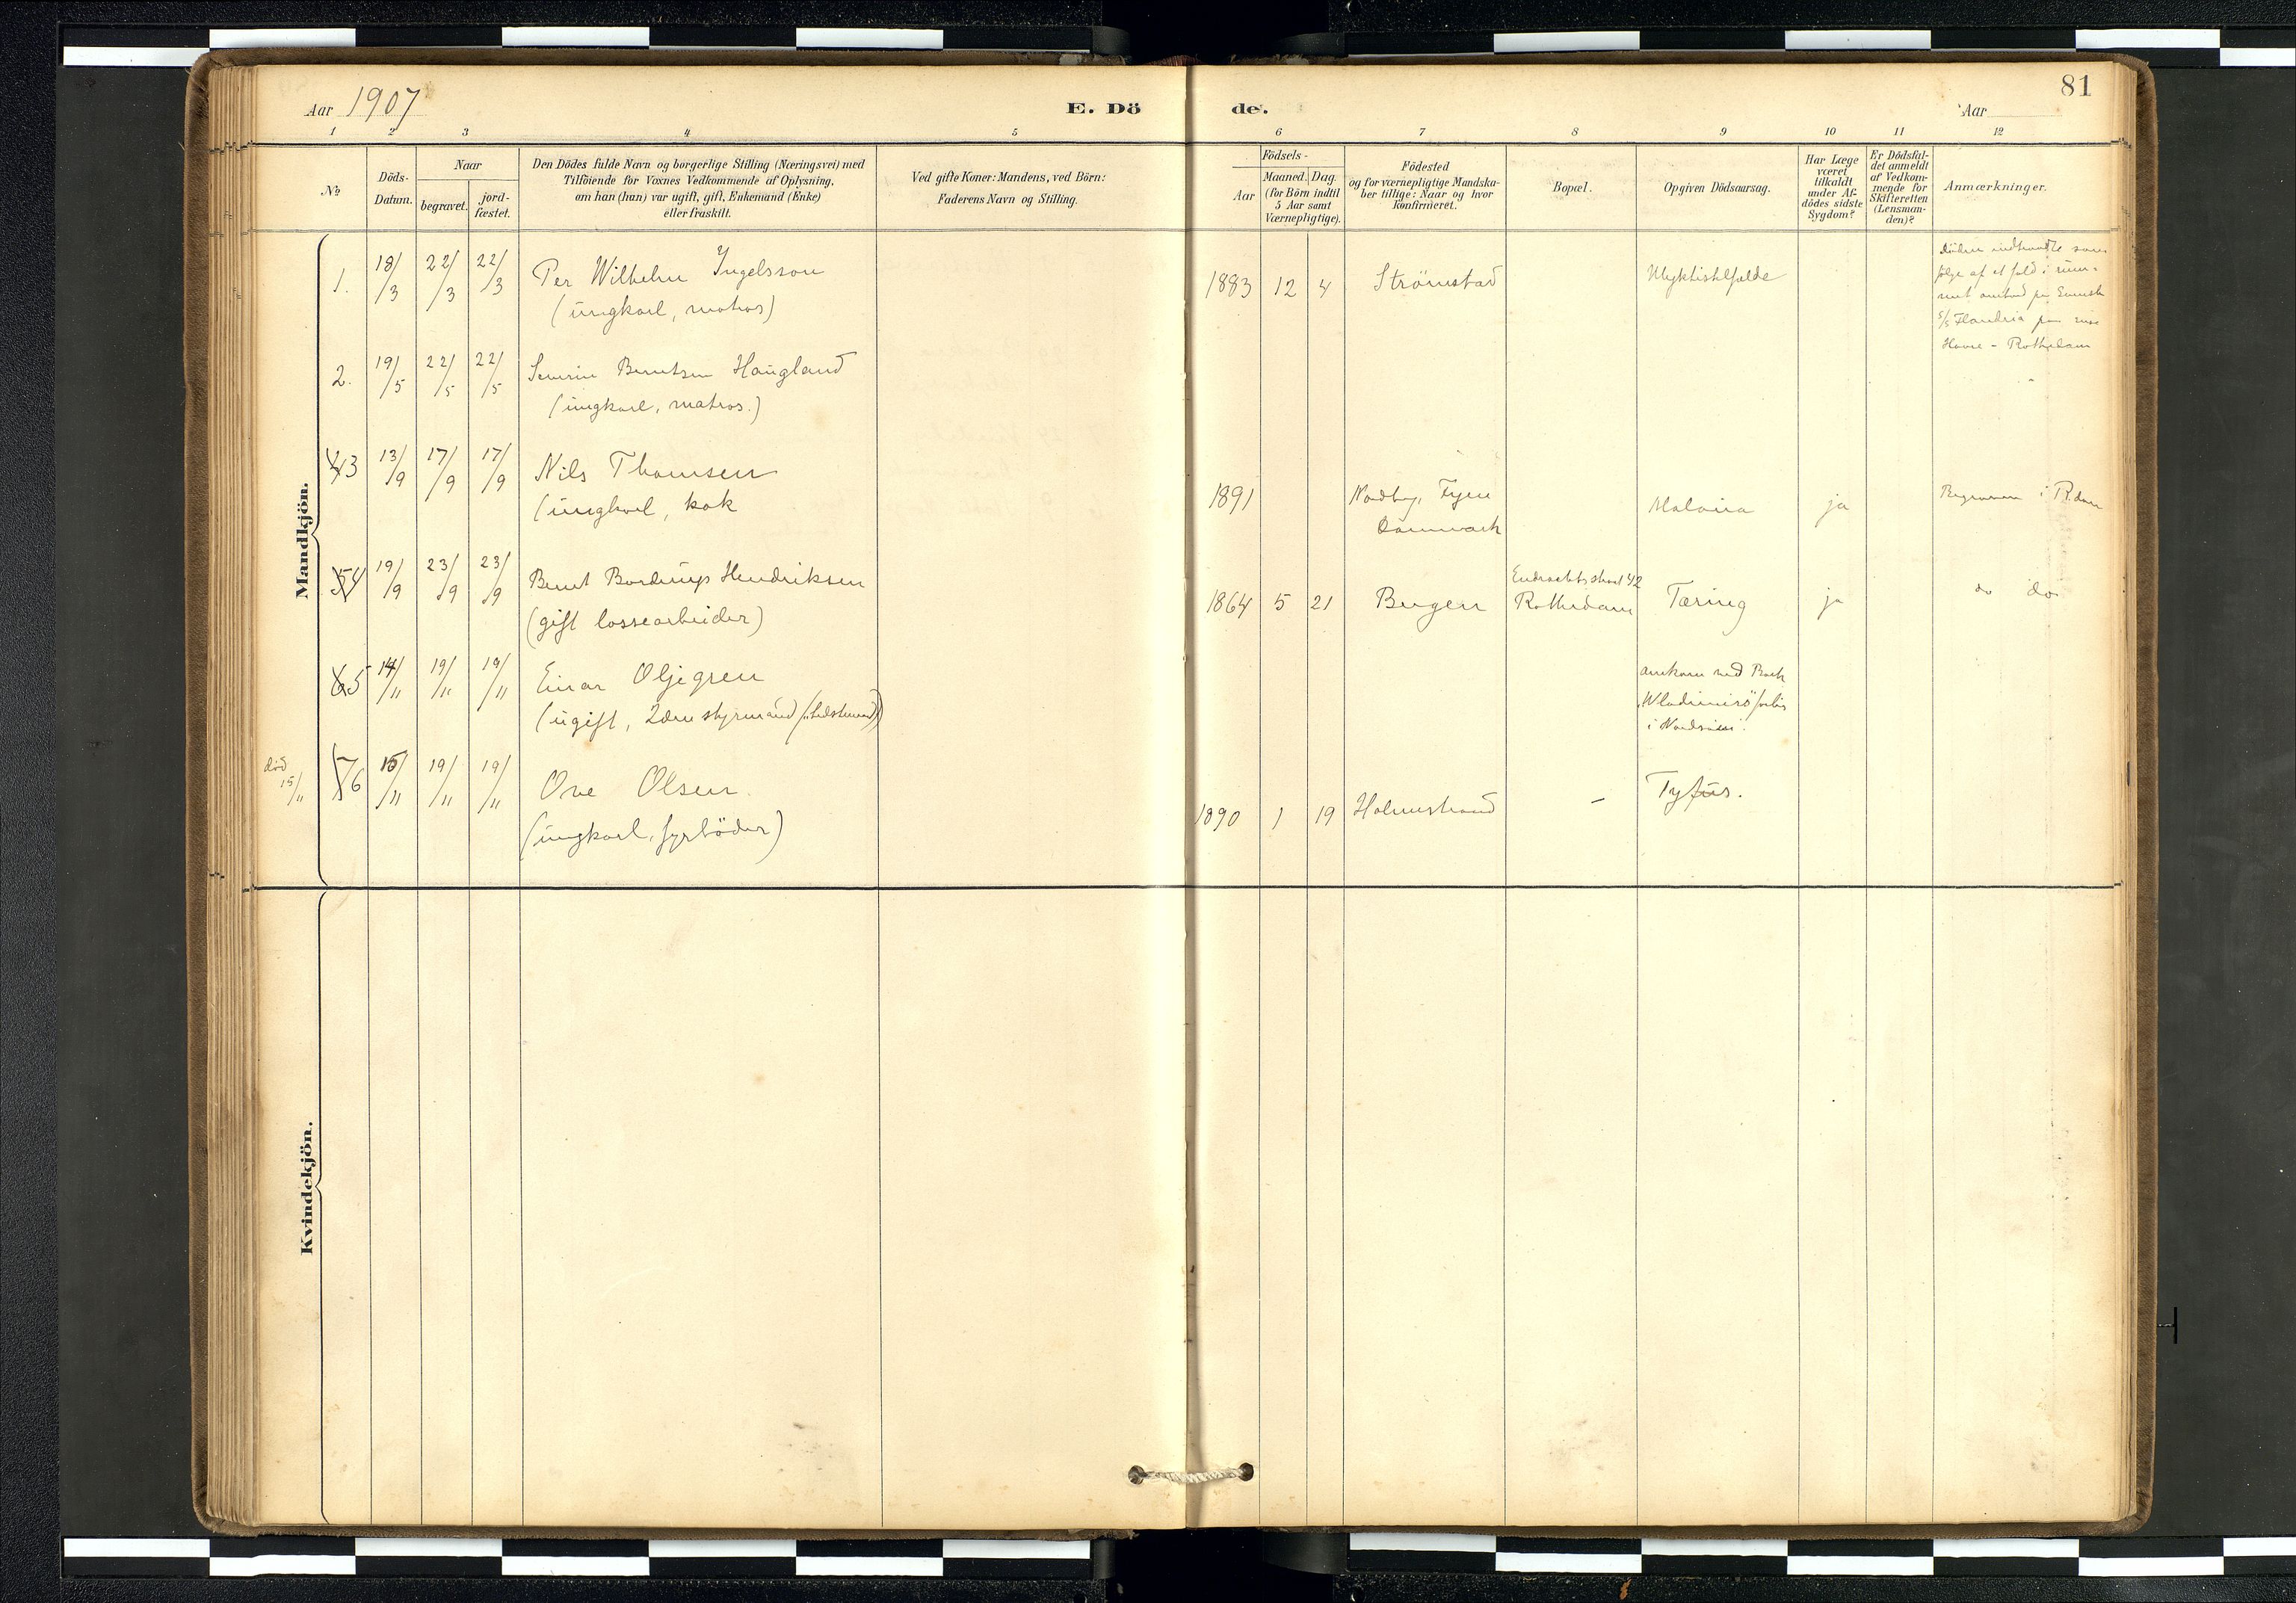 Aar 1907
E. Dö
de.
81
Aar
1 2 3 4 5 6 7 8 9 10 11 12
No
Döds-
Datum.
Naar
begravet.
jord-
fæstet.
Den Dödes fulde Navn og borgerlige Stilling (Næringsvei) med
Tilföiende for Voxnes Vedkommende af Oplysning,
om han (hun) var ugift, gift, Enkemand (Enke)
eller fraskilt.
Ved gifte Koner: Mandens, ved Börn:
Faderens Navn og Stilling.
Födsels-
Aar
Maaned.
Dag.
(for Börn indtil
5 Aar samt
Værnepligtige).
Födested
og for værnepligtige Mandska-
ber tillige: Naar og hvor
konfirmeret.
Bopæl.
Opgiven Dödsaarsag.
Har Læge
været
tilkaldt
under Af-
dödes sidste
Sygdom?
Er Dödsfal-
det anmeldt
af Vedkom-
mende for
Skifteretten
(Lensman-
den)?
Anmærkninger.
Mandkjön.
1. 18/3 22/3 22/3 Per Wilhelm Ingelsson
(ungkarl, matros)
1883 12 4 Strömstad
Döden indtraadte som
følge af et fald i
S/S Flandria paa reise
Havre - Rotterdam
2. 19/5 22/5 22/5 Severin Berntsen Haugland
(ungkarl, matros.)
3 13/9 17/9 17/9 Nils Thomsen
(ungkarl, kok
1891 Nordby, Fyen
Danmark
Malaria ja i R.dam
4 19/9 23/9 23/9 Bernt Bordrup Hendriksen
(gift lossearbeider)
1864 5 21 Bergen
Rotterdam Tæring ja do do
5 14/11 19/11 19/11 Einar Oljegren
(ugift, 2den styrmand
omkom ved Bark
i Nordsjøen.
død
15/11
6 15/11 19/11 19/11 Ove Olsen.
(ungkarl, fyrböder)
1890 1 19 Holmestrand - Tyfus.
Kvindekjön.